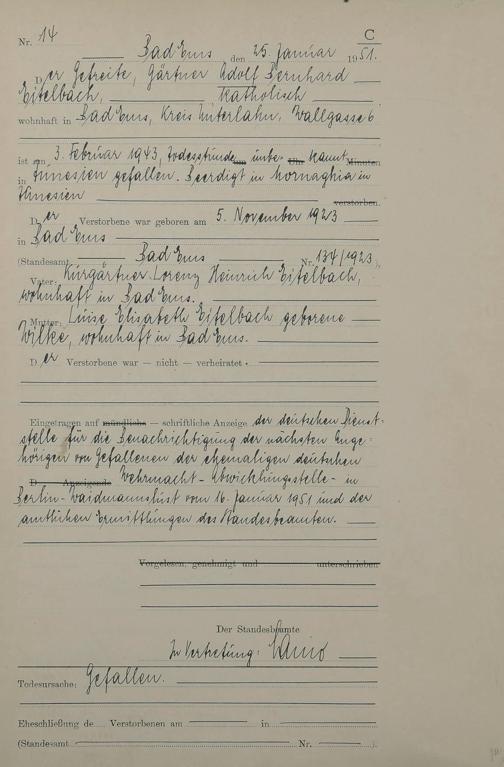 C
Nr. 14
Bad Ems, den 25. Januar 1951.
Der Gefreite, Gärtner Adolf Bernhard
Eitelbach, katholisch
wohnhaft in Bad Ems, Kreis Unterlahn, Wallgasse 6
ist am 3. Februar 1943, Todesstunde um unbe- Uhr kannt Minuten
in Tunesien gefallen. Beerdigt in Mornaghia in
Tunesien verstorben.
Der Verstorbene war geboren am 5. November 1923
in Bad Ems
(Standesamt Bad Ems Nr. 134/1923).
Vater: Kurgärtner Lorenz Heinrich Eitelbach,
wohnhaft in Bad Ems.
Mutter: Luise Elisabeth Eitelbach geborene
Wilke, wohnhaft in Bad Ems.
Der Verstorbene war — nicht — verheiratet.
Eingetragen auf mündliche — schriftliche Anzeige der deutschen Dienst-
stelle für die Benachrichtigung der nächsten Ange-
hörigen von Gefallenen der ehemaligen deutschen
D Anzeigende Wehrmacht - Abwicklungsstelle - in
Berlin-Waidmannslust vom 16. Januar 1951 und der
amtlichen Ermittlungen des Standesbeamten.
Vorgelesen, genehmigt und unterschrieben
Der Standesbeamte
In Vertretung:
Todesursache: Gefallen.
Eheschließung de Verstorbenen am in
(Standesamt Nr. ).